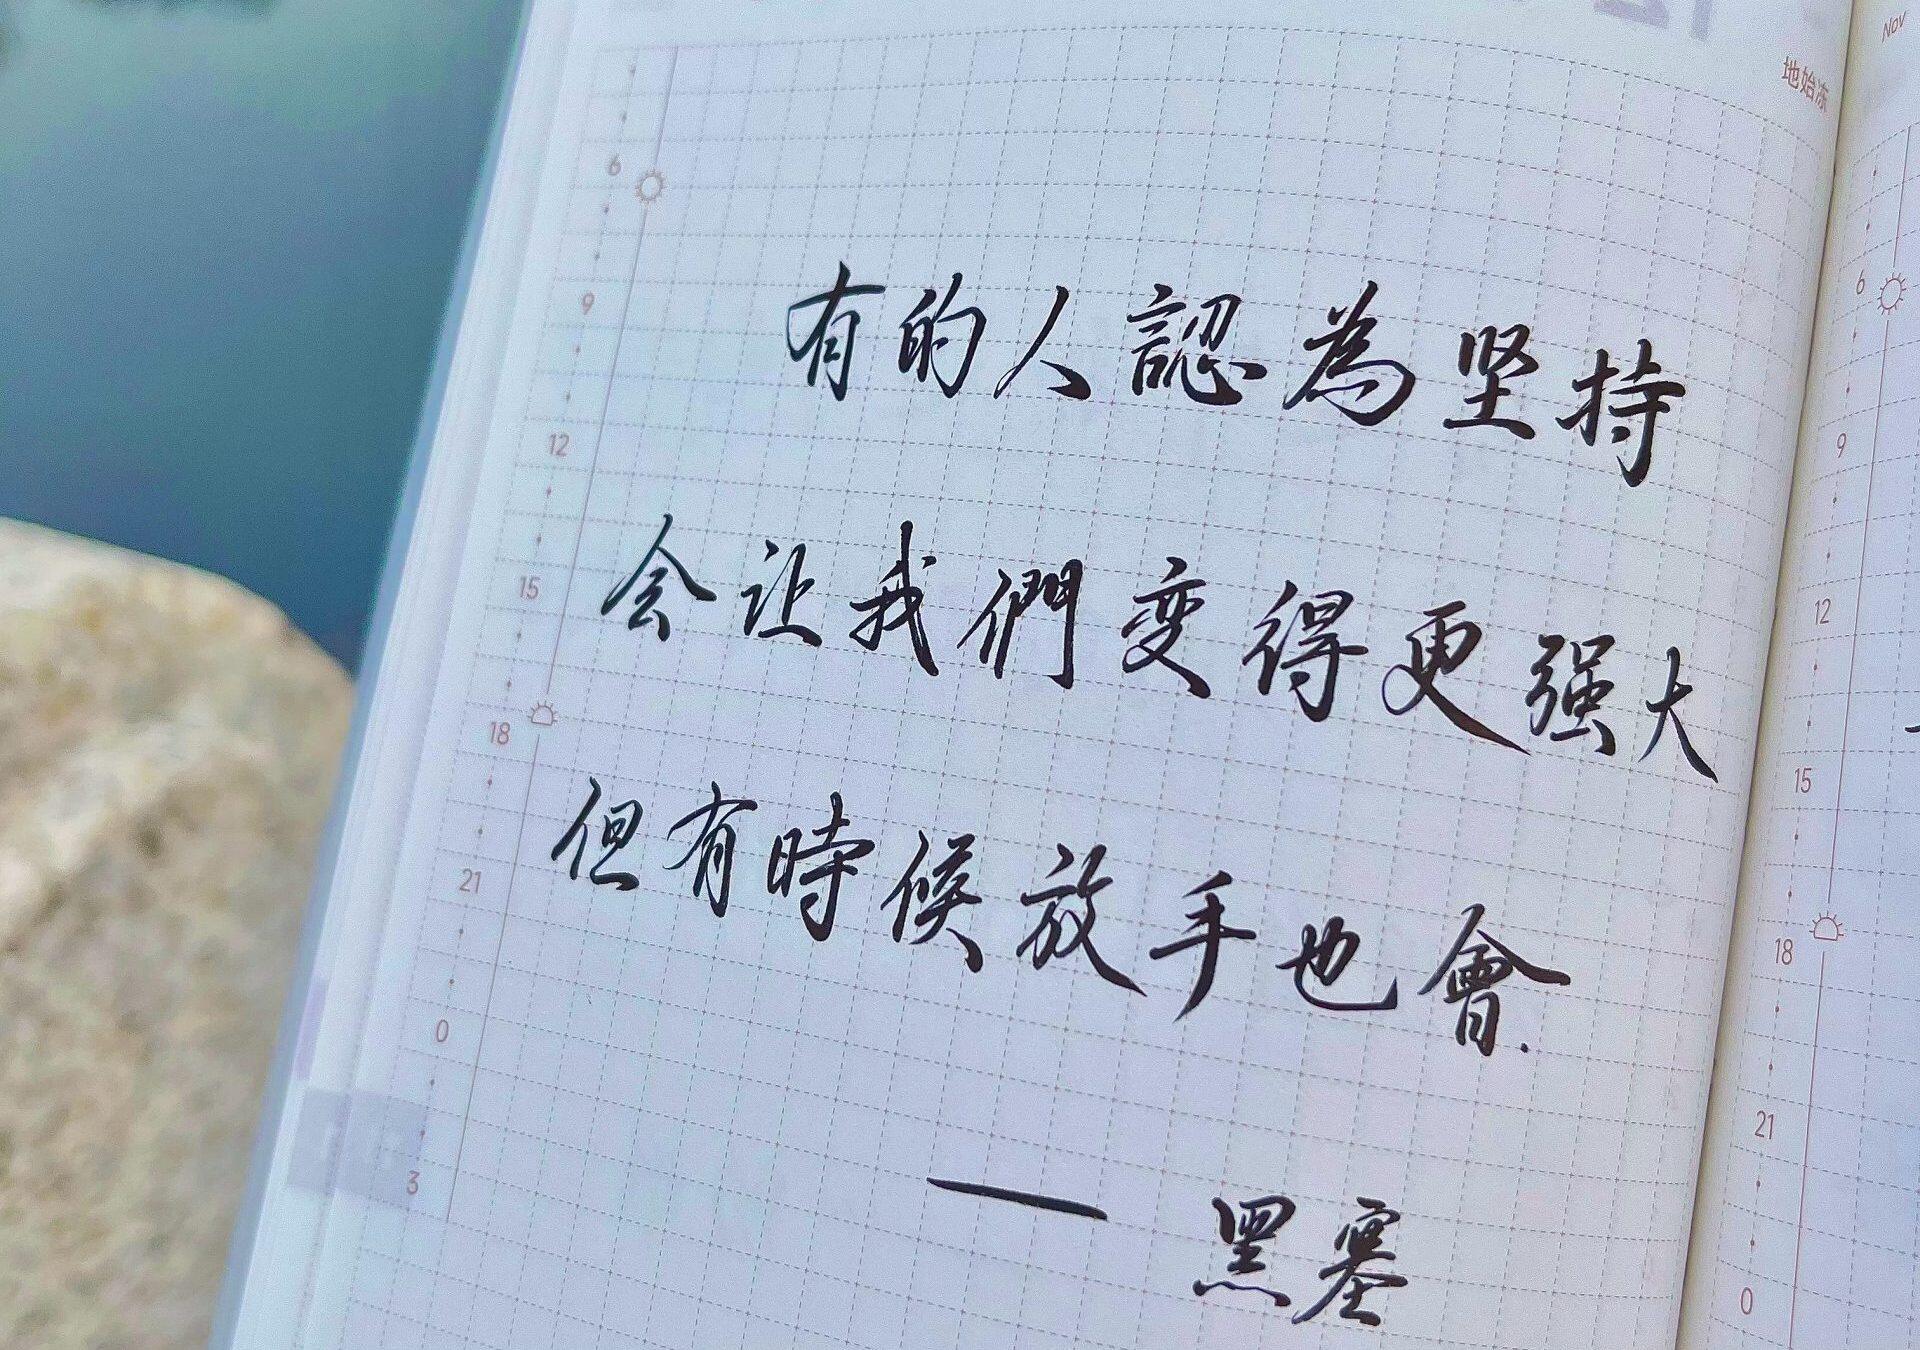 地始冻
NOV
有的人認為坚持
会让我們变得更强大
但有時候放手也會.
— 黑塞
6
9
12
15
18
21
0
3
6
9
12
15
18
21
0